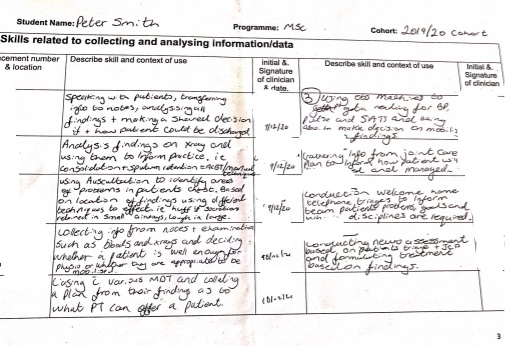 Student Name: Peter Smith
Programme: MSc
Cohort: 2019/20 Cohort
Skills related to collecting and analysing information/data
cement number & location
Describe skill and context of use
Initial & Signature of clinician & date.
Describe skill and context of use
Initial & Signature of clinician
Speaking with patients, transferring
info to notes, analysing all
findings + making a shared decision
if + how patient could be discharged
9/12/20
Analysis findings on xray and
using them to inform practice, i.e
consolidation + sputum retention = ACBT/manual
9/12/20
using Auscultation to identify areas
of problems in patients chest. Based
on location of findings using different
techniques to effect ie huff if secretions
retained in small airways, cough in large.
9/12/20
Collecting info from notes + examination
such as bloods and xrays and deciding
whether a patient is well enough for
physio or whether they are appropriate to be
various MDT and collating
a plan from their findings as to
what PT can offer a patient.
3 Using obs machines to
get a reading for BP,
Pulse and SATS and being
able to make decision on
findings
info from joint care
Plan to inform how patient
and managed.
conduction welcome home
telephone triages to inform
team patients problems, goals and
disciplines are required.
conducting neuro assessment
based on patients triage + JCP
and formulating treatment
based on findings.
3